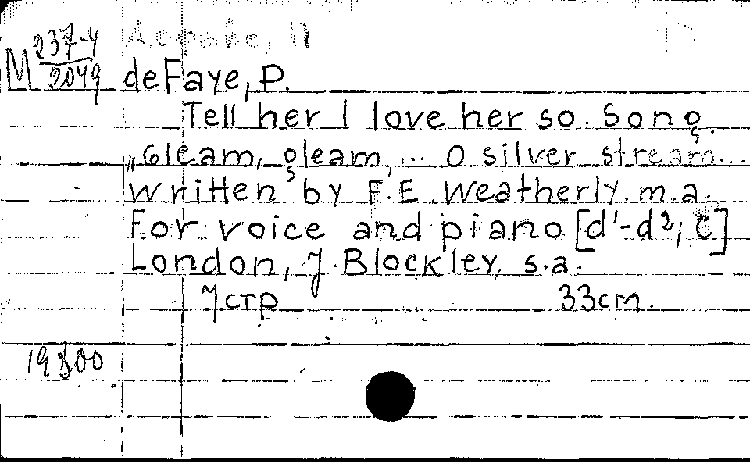 M 237-4
2049
de Faye, P.
Tell her I love her so. Song.
„Gleam, gleam, ... O silver stream...
Written by F.E. Weatherly. m.a.
For voice and piano [d¹-d², C]
London, J. Blockley, s.a.
7 стр 33cm.
19300